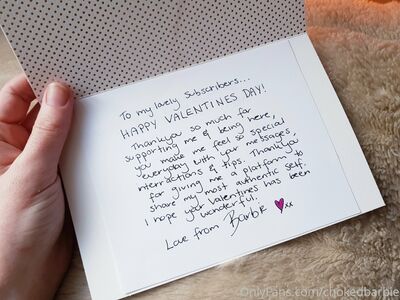 To my lovely subscribers...
HAPPY VALENTINES DAY!
Thankyou so much for
supporting me & being here,
you make me feel so special
everyday with your messages,
interractions & tips. Thankyou
for giving me a platform to
share my most authentic self.
I hope your valentines has been
wonderful!
Love from Barbie xx
OnlyFans.com/chokedbarbie